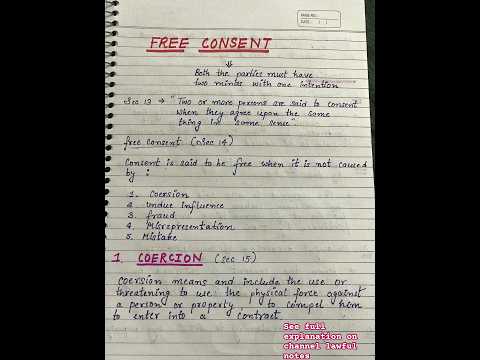 PAGE NO.:
DATE: / /
FREE CONSENT
⇓
Both the parties must have
two mintes with one intention
Sec 13 → "Two or more persons are said to consent
when they agree upon the same
thing in same sense"
free consent (Sec 14)
Consent is said to be free when it is not caused
by :
1. Coersion
2. Undue influence
3. fraud
4. Misrepresentation
5. Mistake
1. COERCION (Sec 15)
Coersion means and include the use or
threatening to use the physical force against
a person or property, to compel him
to enter into a contract.
See full
explanation on
channel lawful
notes